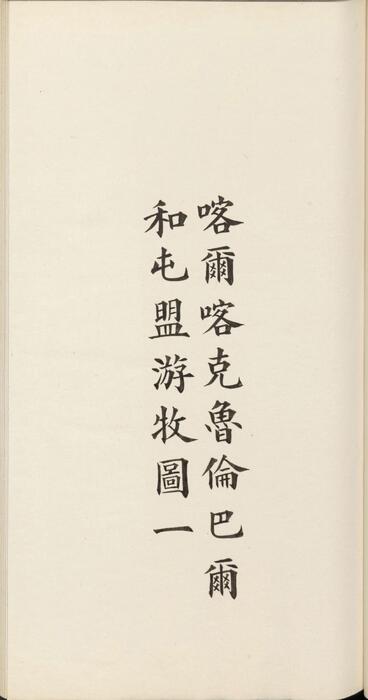 喀爾喀克魯倫巴爾
和屯盟游牧圖一